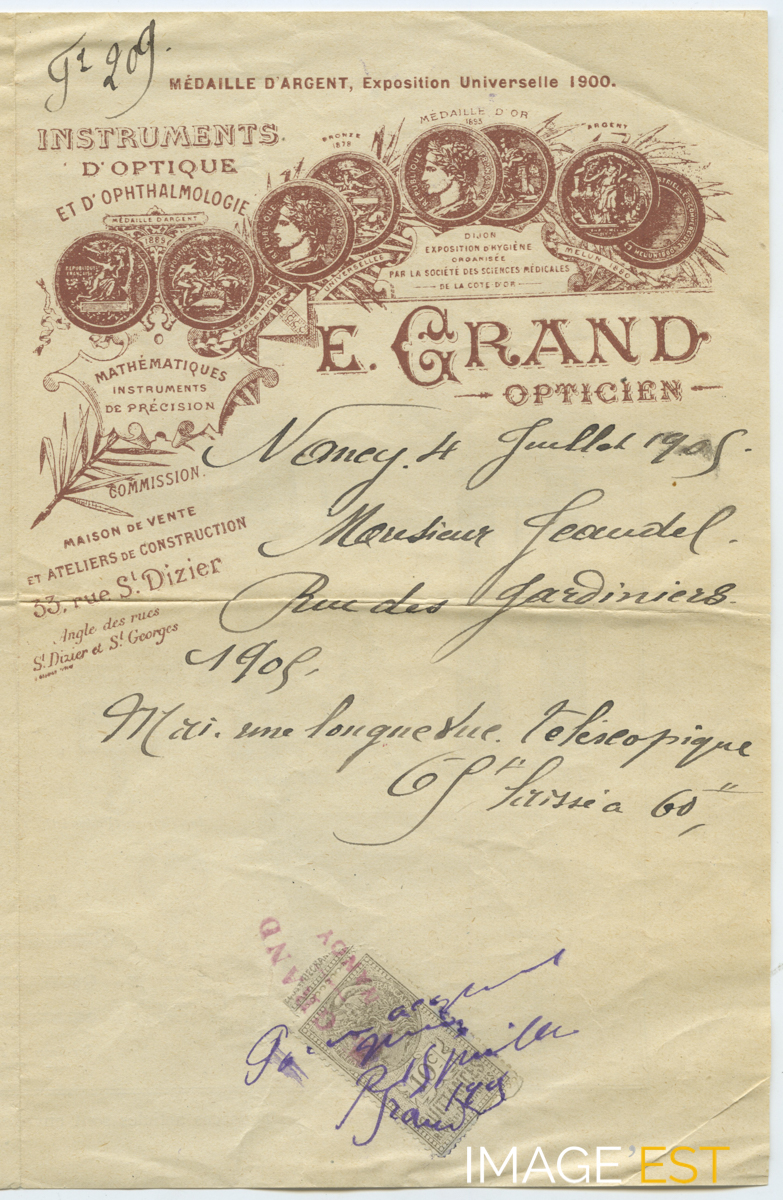 Gr 209.
MÉDAILLE D'ARGENT, Exposition Universelle 1900.
INSTRUMENTS
D'OPTIQUE
ET D'OPHTHALMOLOGIE
MÉDAILLE D'ARGENT
1889
BRONZE
1878
MÉDAILLE D'OR
1893
ARGENT
EXPOSITIONS
UNIVERSELLES
DIJON
EXPOSITION D'HYGIÈNE
ORGANISÉE
PAR LA SOCIÉTÉ DES SCIENCES MÉDICALES
DE LA COTE D'OR
MELUN 1880
E. GRAND
OPTICIEN
MATHÉMATIQUES
INSTRUMENTS
DE PRÉCISION
COMMISSION.
MAISON DE VENTE
ET ATELIERS DE CONSTRUCTION
53, rue St. Dizier
Angle des rues
St. Dizier et St. Georges
Nancy. 4 Juillet 1905.
Monsieur Jeandel.
Rue des Jardiniers.
1905.
Mai. une longue vue. Téléscopique
65" laissé a 60"
GRAND
NANCY
Pour acquit
15 juillet
1905
Grand
IMAGE'EST